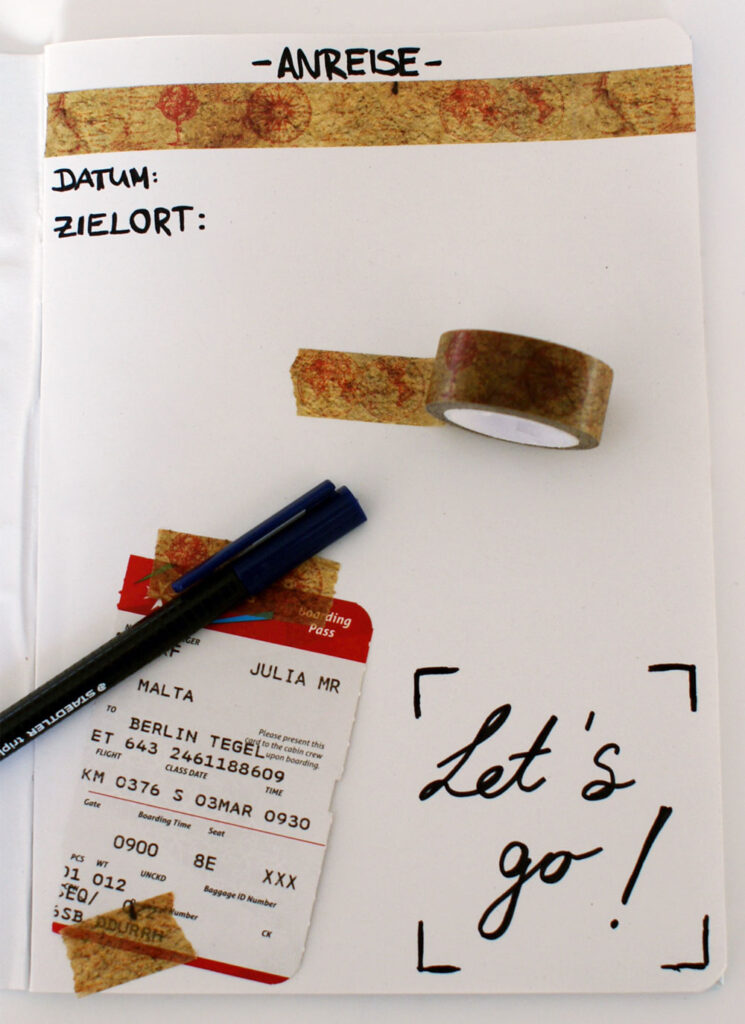 -ANREISE-
DATUM:
ZIELORT:
STAEDTLER
Boarding
Pass
JULIA MR
MALTA
TO
BERLIN TEGEL
Please present this
card to the cabin crew
upon boarding.
ET 643 2461188609
FLIGHT CLASS DATE TIME
KM 0376 S 03MAR 0930
Gate Boarding Time Seat
0900 8E XXX
PCS WT UNCKD Baggage ID Number
01 012
SEQ/ 022 Number
CK
Let's
go!